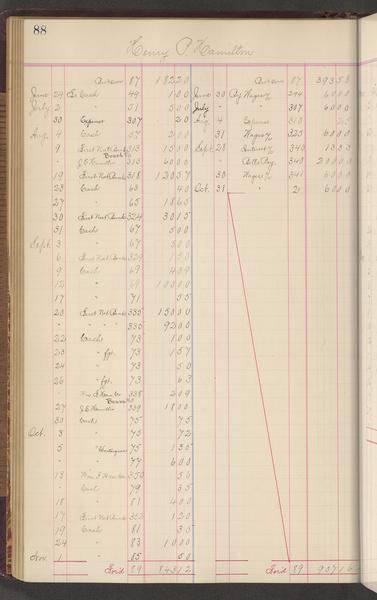 88
Henry P. Hamilton
87 18220 87 39358
June 29 To Cash 49 100 June 30 By Wages 294 6000
July 2 " 51 500 July " 307 6000
30 Expense 307 20 Aug 4 Expense 310 25
Aug. 4 Cash 57 200 31 Wages 325 6000
9 First Nat Bank 313 1500 Sept. 28 Interest 340 1333
313 6000 Bills Pay. 340 20000
19 First Nat Bank 318 12057 30 Wages 341 6000
23 Cash 63 40 Oct. 31 " 21 6000
27 " 65 1865
30 First Nat Bank 324 3015
31 Cash 67 500
Sept. 3 " 67 500
6 First Nat Bank 329 150
9 Cash 69 439
12 " 69 10000
17 " 71 55
20 First Nat Bank 335 15000
" " " " 335 9200
22 Cash 73 100
23 " fgt. 73 157
24 " 73 50
26 " fgt. 73 63
338 209
27 J. E. Hamilton 339 1800
30 Cash 75 75
Oct. 3 " 75 72
5 " 75 135
" 77 600
13 350 56
" Cash 79 35
18 " 81 400
17 First Nat Bank 352 120
19 Cash 81 35
24 " 83 1000
Nov. 1 " 85 50
Ford 89 84312 Ford 89 95716